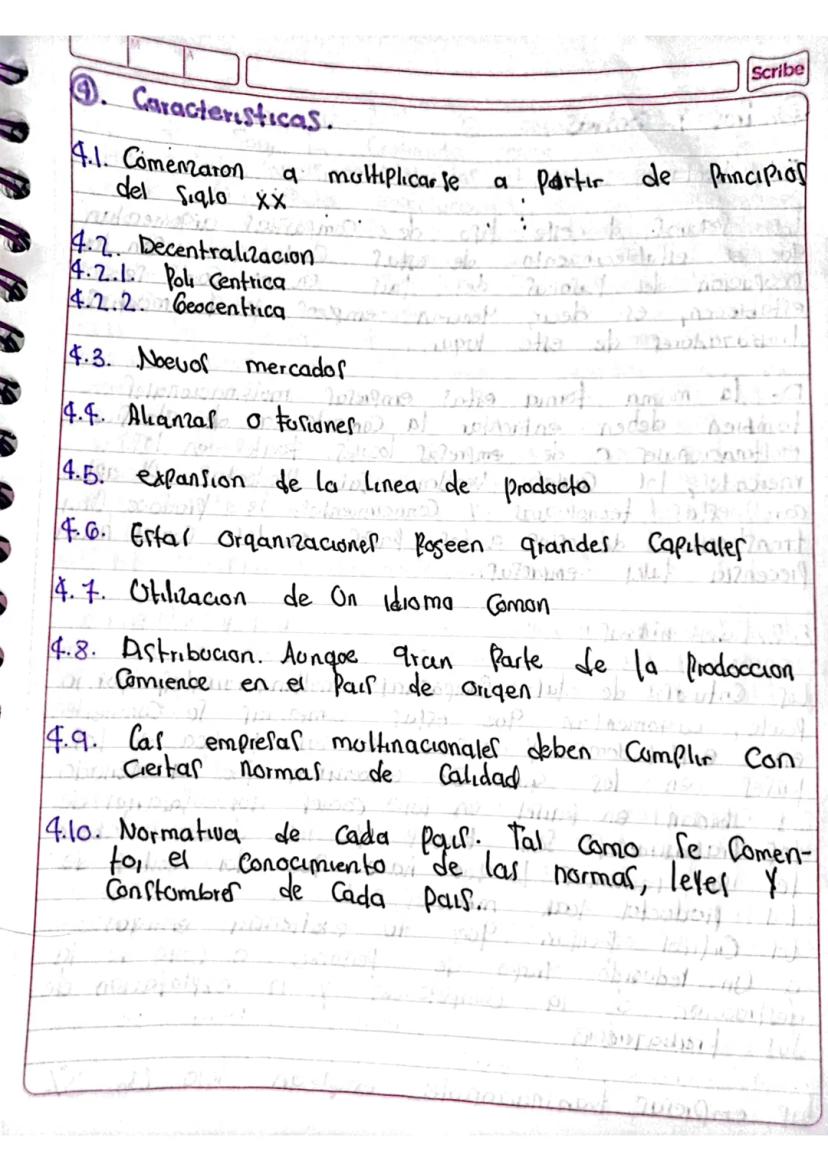 M
A
Scribe
4. Caracteristicas.
4.1. Comenzaron a multiplicarse a partir de Principios
del Siglo XX
4.2. Decentralizacion
4.2.1. Poli Centrica
4.2.2. Geocentrica
4.3. Nuevos mercados
4.4. Alianzas o fusiones
4.5. expansion de la linea de producto
4.6. Estas organizaciones Poseen grandes Capitales
4.7. Utilizacion de Un idioma Comun
4.8. Distribucion. Aunque gran Parte de la Produccion
Comience en el Pais de origen
4.9. Las empresas multinacionales deben Cumplir Con
Ciertas normas de Calidad
4.10. Normativa de Cada Pais. Tal Como Se Comen-
to, el Conocimiento de las normas, leyes Y
Constumbres de Cada Pais.